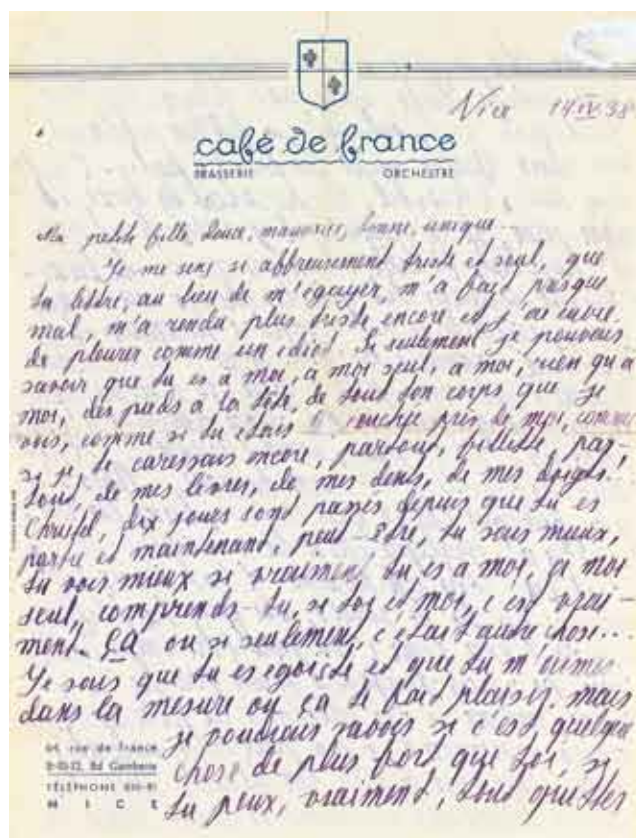 Nice 14 IV 38
café de france
BRASSERIE ORCHESTRE
Ma petite fille douce, mauvaise, bonne, unique
Je me sens si affreusement triste et seul, que
ta lettre, au lieu de m'egayer, m'a fait presque
mal, m'a rendu plus triste encore et j'ai envie
de pleurer comme un idiot. Si seulement je pouvais
savoir que tu es à moi, à moi seul, à moi, rien qu'à
moi, des pieds à la tête, de tout ton corps que je
vois, comme si tu etais couchée près de moi, comme
si je te caressais encore, partout, fillette, par-
tout, de mes lèvres, de mes dents, de mes doigts!
Christel, dix jours sont passés depuis que tu es
partie et maintenant, peut-être, tu sais mieux,
tu vois mieux si vraiment tu es à moi, à moi
seul, comprends-tu, si toi et moi, c'est vrai-
ment ÇA ou si seulement, c'était autre chose...
Je sais que tu es egoiste et que tu m'aimes
dans la mesure ou ça te fait plaisir, mais
je voudrais savoir si c'est quelque
chose de plus fort que toi, si
tu peux, vraiment, tout quitter
64, rue de France
Bd Gambetta
TÉLÉPHONE
NICE